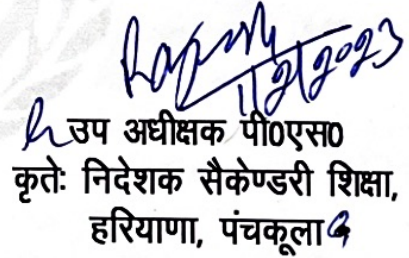 1/2/2023
उप अधीक्षक पी0एस0
कृतेः निदेशक सैकेण्डरी शिक्षा,
हरियाणा, पंचकूला